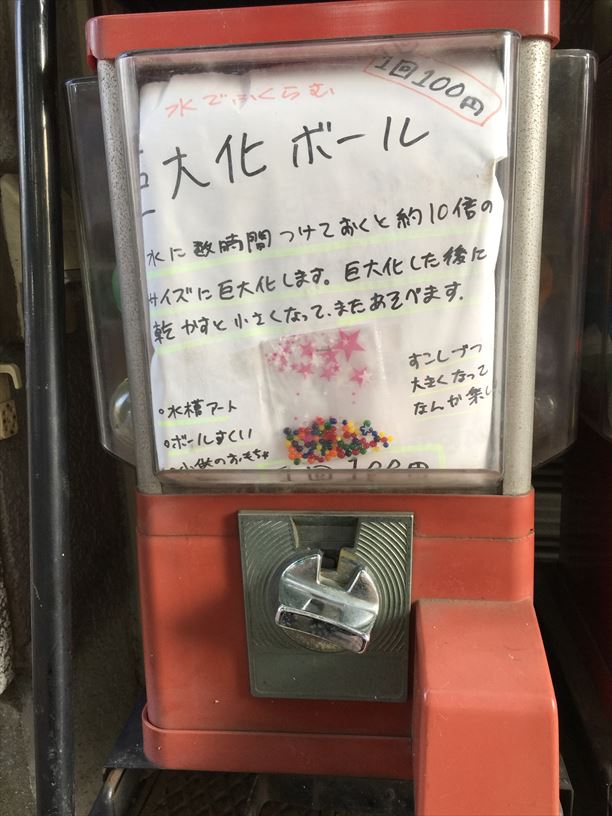 1回100円
水でふくらむ
大化ボール
水に数時間つけておくと約10倍の
サイズに巨大化します。巨大化した後に
乾かすと小さくなって、またあそべます。
すこしづつ
大きくなって
なんか楽し
・水槽アート
・ボールすくい
・小供のおもちゃ
1回100円